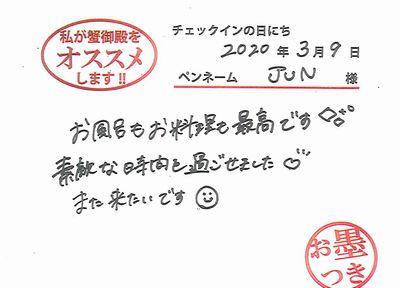 私が蟹御殿を
オススメ
します!!
チェックインの日にち
2020 年 3 月 9 日
ペンネーム JUN 様
お風呂もお料理も最高です
素敵な時間を過ごせました♡
また来たいです☺
お墨
つき